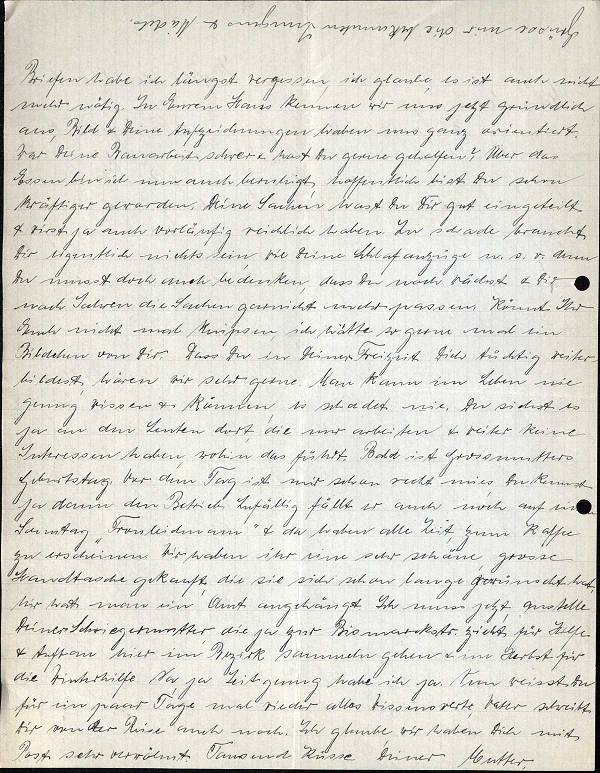 Grüsse mir die bekannten Jungens & Mädels.
Briefen habe ich längst vergessen, ich glaube, es ist auch nicht
mehr nötig. In Eurem Haus kennen wir uns jetzt gründlich
aus, Bild & Deine Aufzeichnungen haben uns ganz orientiert.
War Deine Bauarbeit schwer & hast Du gerne geholfen? Über das
Essen bin ich nun auch beruhigt, hoffentlich bist Du schon
kräftiger geworden. Deine Sachen hast Du Dir gut eingeteilt
& wirst ja auch vorläufig reichlich haben. Zu schade braucht
Dir eigentlich nichts sein, wie Deine Schlafanzüge u. s. w. denn
Du musst doch auch bedenken, dass Du noch wächst & Dir
nach Jahren die Sachen garnicht mehr passen. Könnt Ihr
Euch nicht mal knipsen, ich hätte so gerne mal ein
Bildchen von Dir. Dass Du in Deiner Freizeit Dich tüchtig weiter
bildest, hören wir sehr gerne. Man kann im Leben nie
genug wissen & können, es schadet nie. Du siehst es
ja an den Leuten dort, die nur arbeiten & weiter keine
Interessen haben, wohin das führt. Bald ist Grossmutters
Geburtstag. Vor dem Tag ist mir schon recht mies. Du kennst
ja dann den Betrieb. Zufällig fällt er auch noch auf
Samstag "Fronleichnam" & da haben alle Zeit, zum Kaffe
zu erscheinen. Wir haben ihr eine sehr schöne, grosse
Handtasche gekauft, die sie sich schon lange gewünscht hat.
Mir hat man ein Amt angehängt. Ich muss jetzt, anstelle
Deiner Schwiegermutter die ja zur Bismarckstr. zieht, für Hilfe
& Aufbau hier im Bezirk sammeln gehen & im Herbst für
die Winterhilfe. Na ja Zeit genug habe ich ja. Nun weisst Du
für ein paar Tage mal wieder alles Wissenswerte, Vater schreibt
Dir von der Reise auch noch. Ich glaube wir haben Dich mit
Post sehr verwöhnt. Tausend Küsse Deiner Mutter